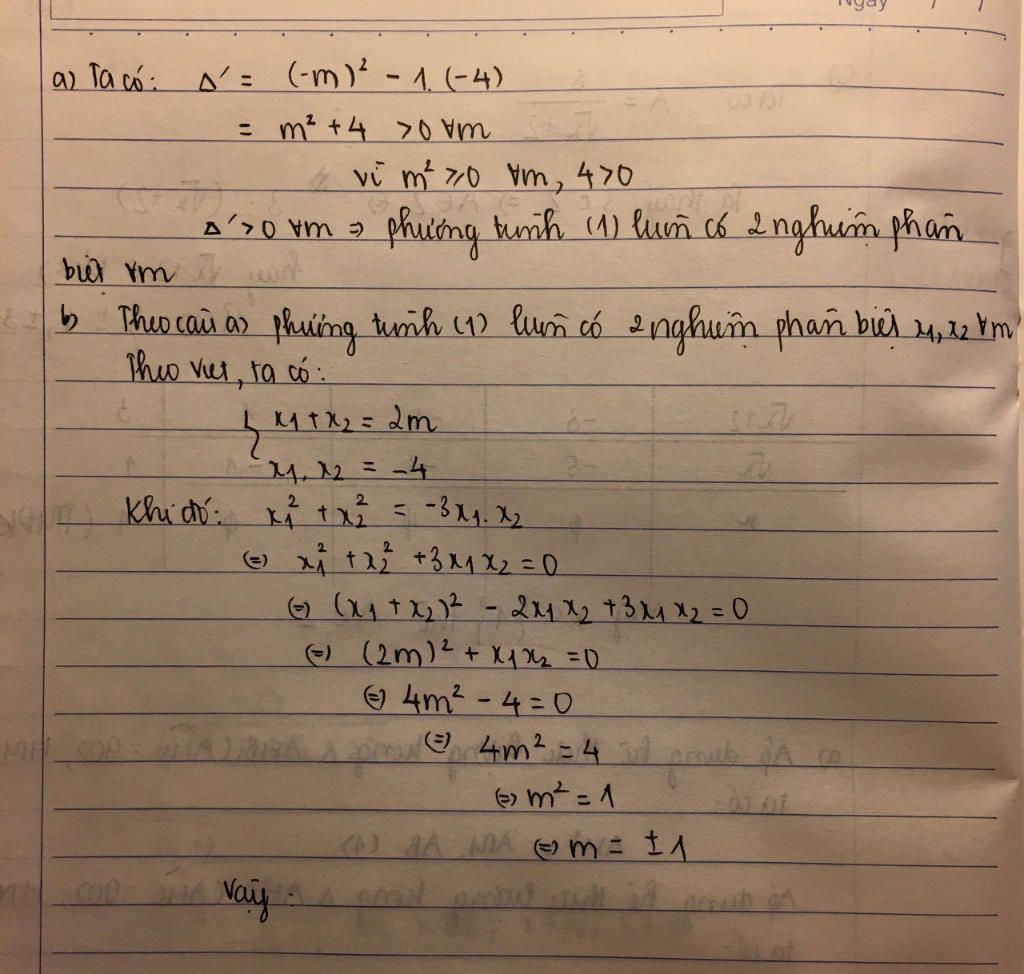 Ngày / /
a) Ta có: Δ' = (-m)² - 1. (-4)
= m² + 4 > 0 ∀m
vì m² ⩾ 0 ∀m, 4 > 0
Δ' > 0 ∀m ⇒ phương trình (1) luôn có 2 nghiệm phân
biệt ∀m
b) Theo câu a) phương trình (1) luôn có 2 nghiệm phân biệt x₁, x₂ ∀m
Theo Viet, ta có:
{ x₁ + x₂ = 2m
x₁. x₂ = -4
Khi đó: x₁² + x₂² = -3x₁. x₂
⇔ x₁² + x₂² + 3x₁x₂ = 0
⇔ (x₁ + x₂)² - 2x₁x₂ + 3x₁x₂ = 0
⇔ (2m)² + x₁x₂ = 0
⇔ 4m² - 4 = 0
⇔ 4m² = 4
⇔ m² = 1
⇔ m = ±1
Vậy :